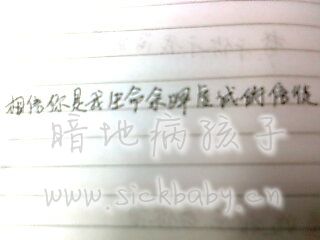 相信你是我生命余晖
暗地病孩子
www.sickbaby.cn